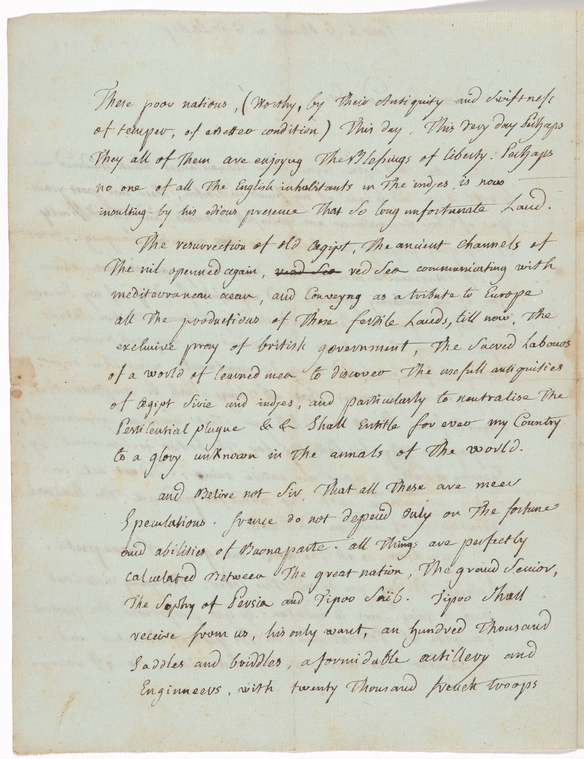 These poor nations, (Worthy, by Their Antiquity and Swiftness
of temper, of a Better condition) This day, This very day Perhaps
They all of Them are enjoyng The Blessings of liberty: Perhaps
no one of all The English inhabitants in The indjes is now
insulting by his odious presence That So long unfortunate Land.
The resurrection of old Œgipt, The ancient channels of
The nil openned again, read Sea red Sea communicating with
mediterranean ocean, and Conveyng as a tribute to Europe
all The productions of These fertile Lands, till now, The
exclusive pray of british government, The Sacred Labours
of a world of learned men to discover The usefull antiquities
of Œgipt Sirie and indjes, and particularly to neutralise The
Pestilential plague && Shall Entitle for ever my Country
to a glory unknown in The annals of The world.
and Belive not Sir, That all These are meer
Speculations. france do not depend only on The fortune
and abilities of Buonaparte. all Things are perfectly
calculated Between The great nation, The grand Senior,
The Sophy of Persia and Tipoo Saïb. Tipoo Shall
receive from us, his only want, an hundred Thousand
Saddles and briddles, a formidable artillery and
Engineers, with twenty Thousand french troops